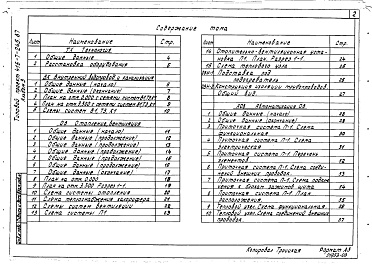 2
Содержание тома
Лист
Наименование
Стр.
ТХ Технология
1 Общие данные 4
2 Расстановка оборудования 5
ВК Внутренний водопровод и канализация
1 Общие данные (начало)
2 Общие данные (окончание)
3 План на отм. 0.000 с сетями
4 План на отм. 3.300 с сетями
5 Схемы систем В1, Т3, К1
ОВ Отопление, вентиляция
1 Общие данные (начало) 11
2 Общие данные (продолжение) 12
3 Общие данные (продолжение) 13
4 Общие данные (продолжение) 14
5 Общие данные (продолжение) 15
6 Общие данные (продолжение) 16
7 Общие данные (окончание) 17
8 План на отм. 0.000 18
9 План на отм. 3.300 Разрез 1-1 19
10 Схема системы отопления 20
11 Схема теплоснабжения калорифера 21
12 Схемы систем вентиляции
13 Схемы системы П1
Лист
Наименование
Стр.
14 Отопительно-вентиляционная установка П1. План. Разрез 1-1. 24
15 Схема теплового узла 25
Подставка под водоподогреватель 26
Конструкция изоляции трубопроводов. Общий вид 27
Автоматизация ОВ
1 Общие данные (начало) 28
2 Общие данные (окончание) 29
3 Приточная система П-1. Схема функциональная 30
4 Приточная система П-1. Схема электрическая 31
5 Приточная система П-1. Перечень элементов 32
6 Приточная система П-1. Схема соединений внешних проводок. 33
7 Приточная система П-1. Схема 34
8 Приточная система П-1. План расположения. 35
9 Тепловой узел. Схема функциональная 36
10 Тепловой узел. Схема соединений внешних проводок. 37
Копировал Троицкая
Формат А3